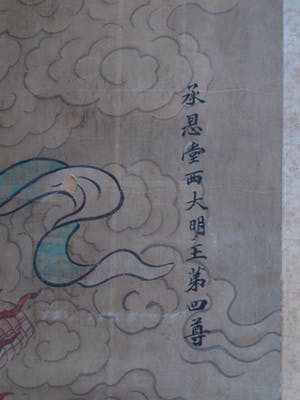 承恩堂西大明王第四尊